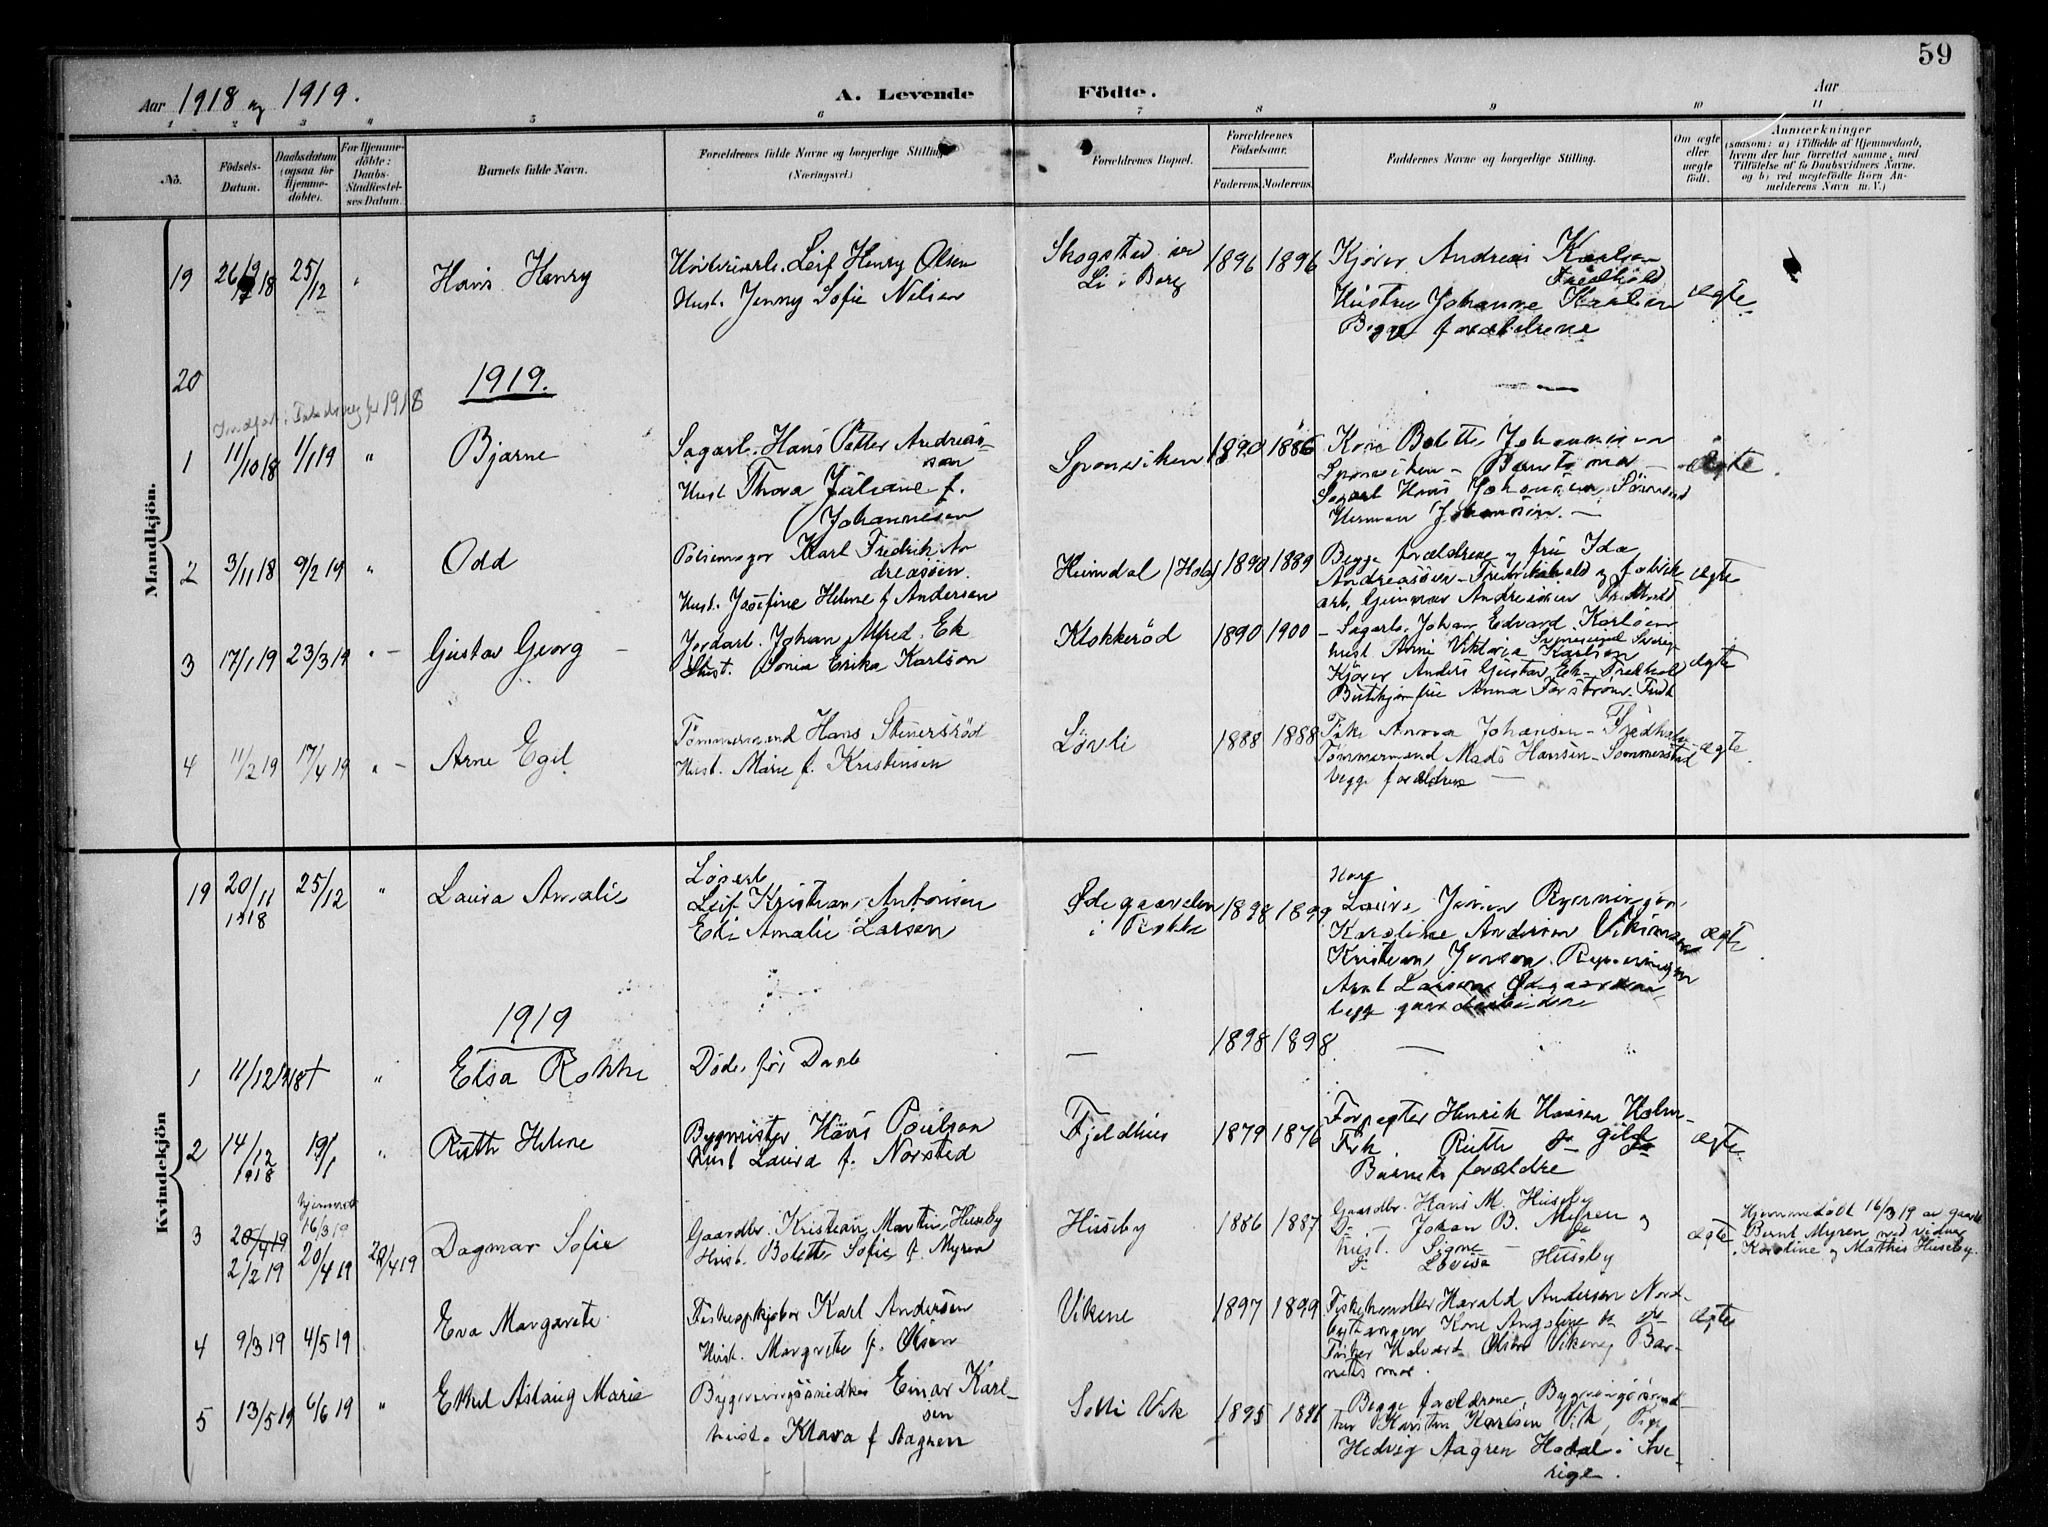 59
Aar 1918 og 1919.
A. Levende Födte.
Aar
1 2 3 4 5 6 7 8 9 10 11
No.
Födsels-
Datum.
Daabsdatum
(ogsaa for
Hjemme-
döbte).
For Hjemme-
döbte:
Daabs-
Stadfæstel-
ses Datum.
Barnets fulde Navn.
Forældrenes fulde Navne og borgerlige Stilling
(Næringsvei.)
Forældrenes Bopæl.
Forældrenes
Födselsaar.
Faderens. Moderens.
Faddernes Navne og borgerlige Stilling.
Om ægte
eller
uægte
födt.
Anmærkninger
(saasom: a) i Tilfælde af Hjemmedaab,
hvem der har forrettet samme, med
Tilföielse af to Daabsvidners Navne.
og b) ved uægtefödte Börn An-
melderens Navn m. V.)
Mandkjön.
19 26/9 18 25/12 " Hans Henry
Leif Henry Olsen
Hust. Jenny Sofie Nilsen
Skogsted
Li i Berg
1896 1896
Kjører Andreas Karlsen
Fredhald
Hustru Johanne Karlsen
Begge forældrene
ægte
20
1919.
1918
1 11/10 18 1/1 19 " Bjarne
Sagarb. Hans Petter Andreas-
sen
Hust Thora Juliane f.
Johannesen
Sponviken
1890 1886
Kone Bolette Johannesen
Sponviken – Barnets mor –
Sagarb Hans Johansen
Herman Johansen. –
ægte
2 3/11 18 9/2 19 " Odd
Karl Fredrik An
dreasøen.
Hust. Josefine Helene f Andersen
Heimdal (Hold)
1890 1889
Begge forældrene og frú Ida
Andreasøen – Fredrikshald og fabrik
arb. Gunnar Andresen Fredhald
ægte
3 17/1 19 23/3 19 " – Gustav Georg –
Jordarb. Johan Alfred Ek
Hust. Sonia Erika Karlson
Klokkerød
1890 1900
– Sagarb. Johan Edvard Karlsen
hust Anni Viktoria Karlson
Kjører Anders Gustav Ek Fredhald
Anna Forstrøm Fredh
ægte
4 11/2 19 17/4 19 " – Arne Egil
Tømmermand Hans Stenersrød
Hust. Marie f. Kristensen
Løvli
1888 1888
Frk. Anna Johansen – Fredhald
Tømmermand Mads Hansen – Sommerstad
begge forældrene –
ægte
Kvindekjön
19 20/11 1918 25/12 " Laura Amalie
Løsarb
Leif Kristian Antonsen
Eli Amalie Larsen
Ødegaarden
i Rokke
1898 1899
Laura Jensen
Karoline Andersen
Kristian Jensen
Arnt Larsen Ødegaarden
begge gaardarbeidere
ægte
1919
1 11/12 1918 + " Elsa Rokke
Døde før Daab
–
1898 1898
–
2 14/12 1918 19/1 " Ruth Helene
Bygmester Hans Poulson
Hust Laura f. Norsted
Fjeldhus
1879 1876
Forpagter Henrik Hansen Holm-
Frk Ruth
Barnets forældre
ægte
3 20/4 19
2/2 19
hjemmed
16/3 19
20/4 19
20/4 19
Dagmar Sofie
Gaardbr. Kristian Martin Huseby
Hust. Bolette Sofie f. Myren
Huseby
1886 1887
Gaardbr. Hans M. Huseby
Do – Johan B. Myren og
hust. Signe – do
do Lovisa Huseby
ægte
Hjemmedøbt 16/3 19 av gaardb
Bernt Myren med vidner
Karoline og Mathis Huseby.
4 9/3 19 4/5 19
Eva Margarete
Fiskeopkjøber Karl Andersen
Hust. Margrete f. Olsen
Vikene
1897 1899
Fiskehandler Harald Andersen Nord-
Kone Angstine do do
Fisker Halvard Olsen Vikene Bar-
nets mor.
ægte
5 13/5 19 6/6 19 " Ethel Aslaug Marie
Bygningssnedker Einar Karl-
sen
hust. Klara f Aagren
Solli Vik
1895 1896
Begge forældrene, Bygningssned-
ker Karsten Karlsen Vik, Pige
Hedvig Aagren Hedal i Sve-
rige.